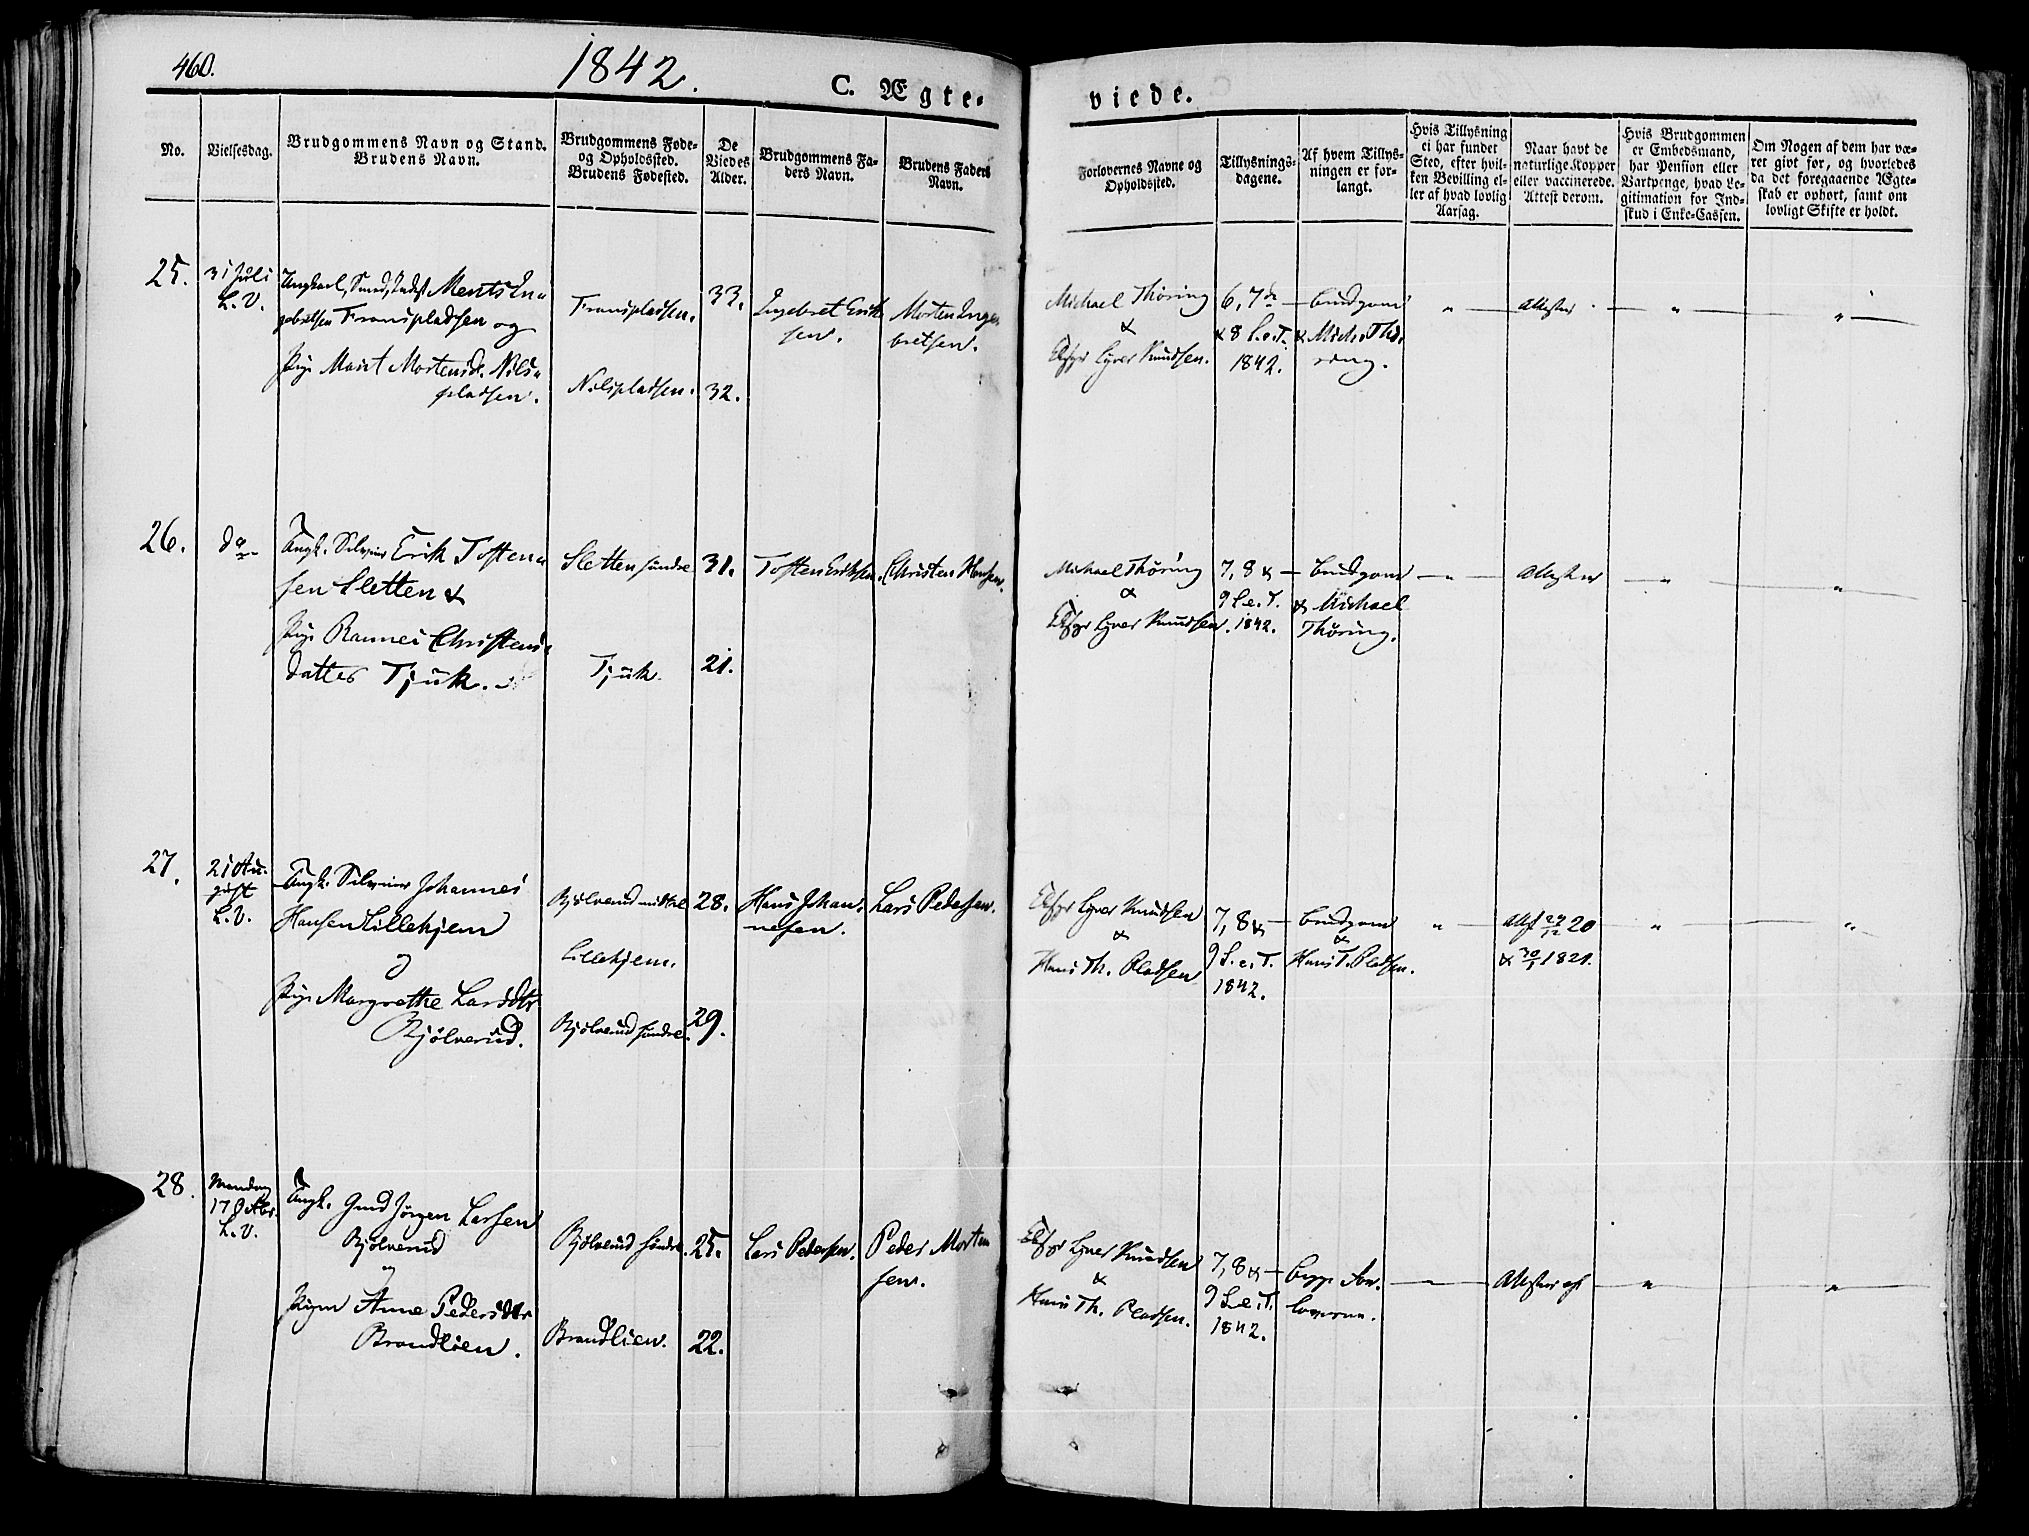 460.
1842.
C. Ægte-
viede.
No.
Vielsesdag.
Brudgommens Navn og Stand.
Brudens Navn.
Brudgommens Føde-
og Opholdssted.
Brudens Fødested.
De
Viedes
Alder.
Brudgommens Fa-
ders Navn.
Brudens Faders
Navn.
Forlovernes Navne og
Opholdssted.
Tillysnings-
dagene.
Af hvem Tillys-
ningen er for-
langt.
Hvis Tillysning
ei har fundet
Sted, efter hvil-
ken Bevilling el-
ler af hvad lovlig
Aarsag.
Naar havt de
naturlige Kopper
eller vaccinerede.
Attest derom.
Hvis Brudgommen
er Embedsmand,
har Pension eller
Vartpenge, hvad Le-
gitimation for Ind-
skud i Enke-Cassen.
Om Nogen af dem har væ-
ret givt før, og hvorledes
da det foregaaende Ægte-
skab er ophørt, samt om
lovligt Skifte er holdt.
25.
31 Juli
L. V.
Ungkarl, Smed, Inderst Ments In-
gebretsen Franspladsen og
Pige Marit Mortensd. Nils-
pladsen.
Franspladsen.
Nilspladsen.
33.
32.
Ingebret Erik
sen.
Morten Inge
bretsen.
Michael Thøring
&
Eyver Knudsen.
6, 7de
& 8 S. e. T.
1842.
Brudgom
& Mich. Thø-
ring.
"
Attester
"
"
26.
do
Ungk. Erik Tosten-
sen Sletten &
Pige Rannei Christens-
datter Tjuk.
Sletten søndre
Tjuk.
31.
21.
Tosten Eriksen.
Christen Hansen.
Michael Thøring
&
Eyver Knudsen.
7, 8 &
9 S. e. T.
1842.
Brudgom
& Michael
Thøring.
"
Attester
"
"
27.
21 Au-
gust
L. V.
Ungk. Johannes
Hansen Lillehjem
Pige Margrethe Larsdtr
Bjølverud.
Bjølverud mittel
Lillehjem.
Bjølverud søndre.
28.
29.
Hans Johan-
nesen.
Lars Pedersen.
Eyver Knudsen
&
Hans Th. Pladsen
7, 8 &
9 S. e. T.
1842.
Brudgom
&
Hans T. Pladsen.
"
Att 29/12 20
& 30/1 1821.
"
"
28.
Mandag
17 Octbr.
L. V.
Ungk. Gud Jørgen Larsen
Bjølverud
og
Pigen Anne Pedersdtr
Brandlien.
Bjølverud søndre.
Brandlien.
25.
22.
Lars Pedersen.
Peder Morten
sen.
Eyver Knudsen
&
Hans Th. Pladsen.
7, 8 &
9 S. e. T.
1842.
Begge For-
loverne.
"
Attester
"
"